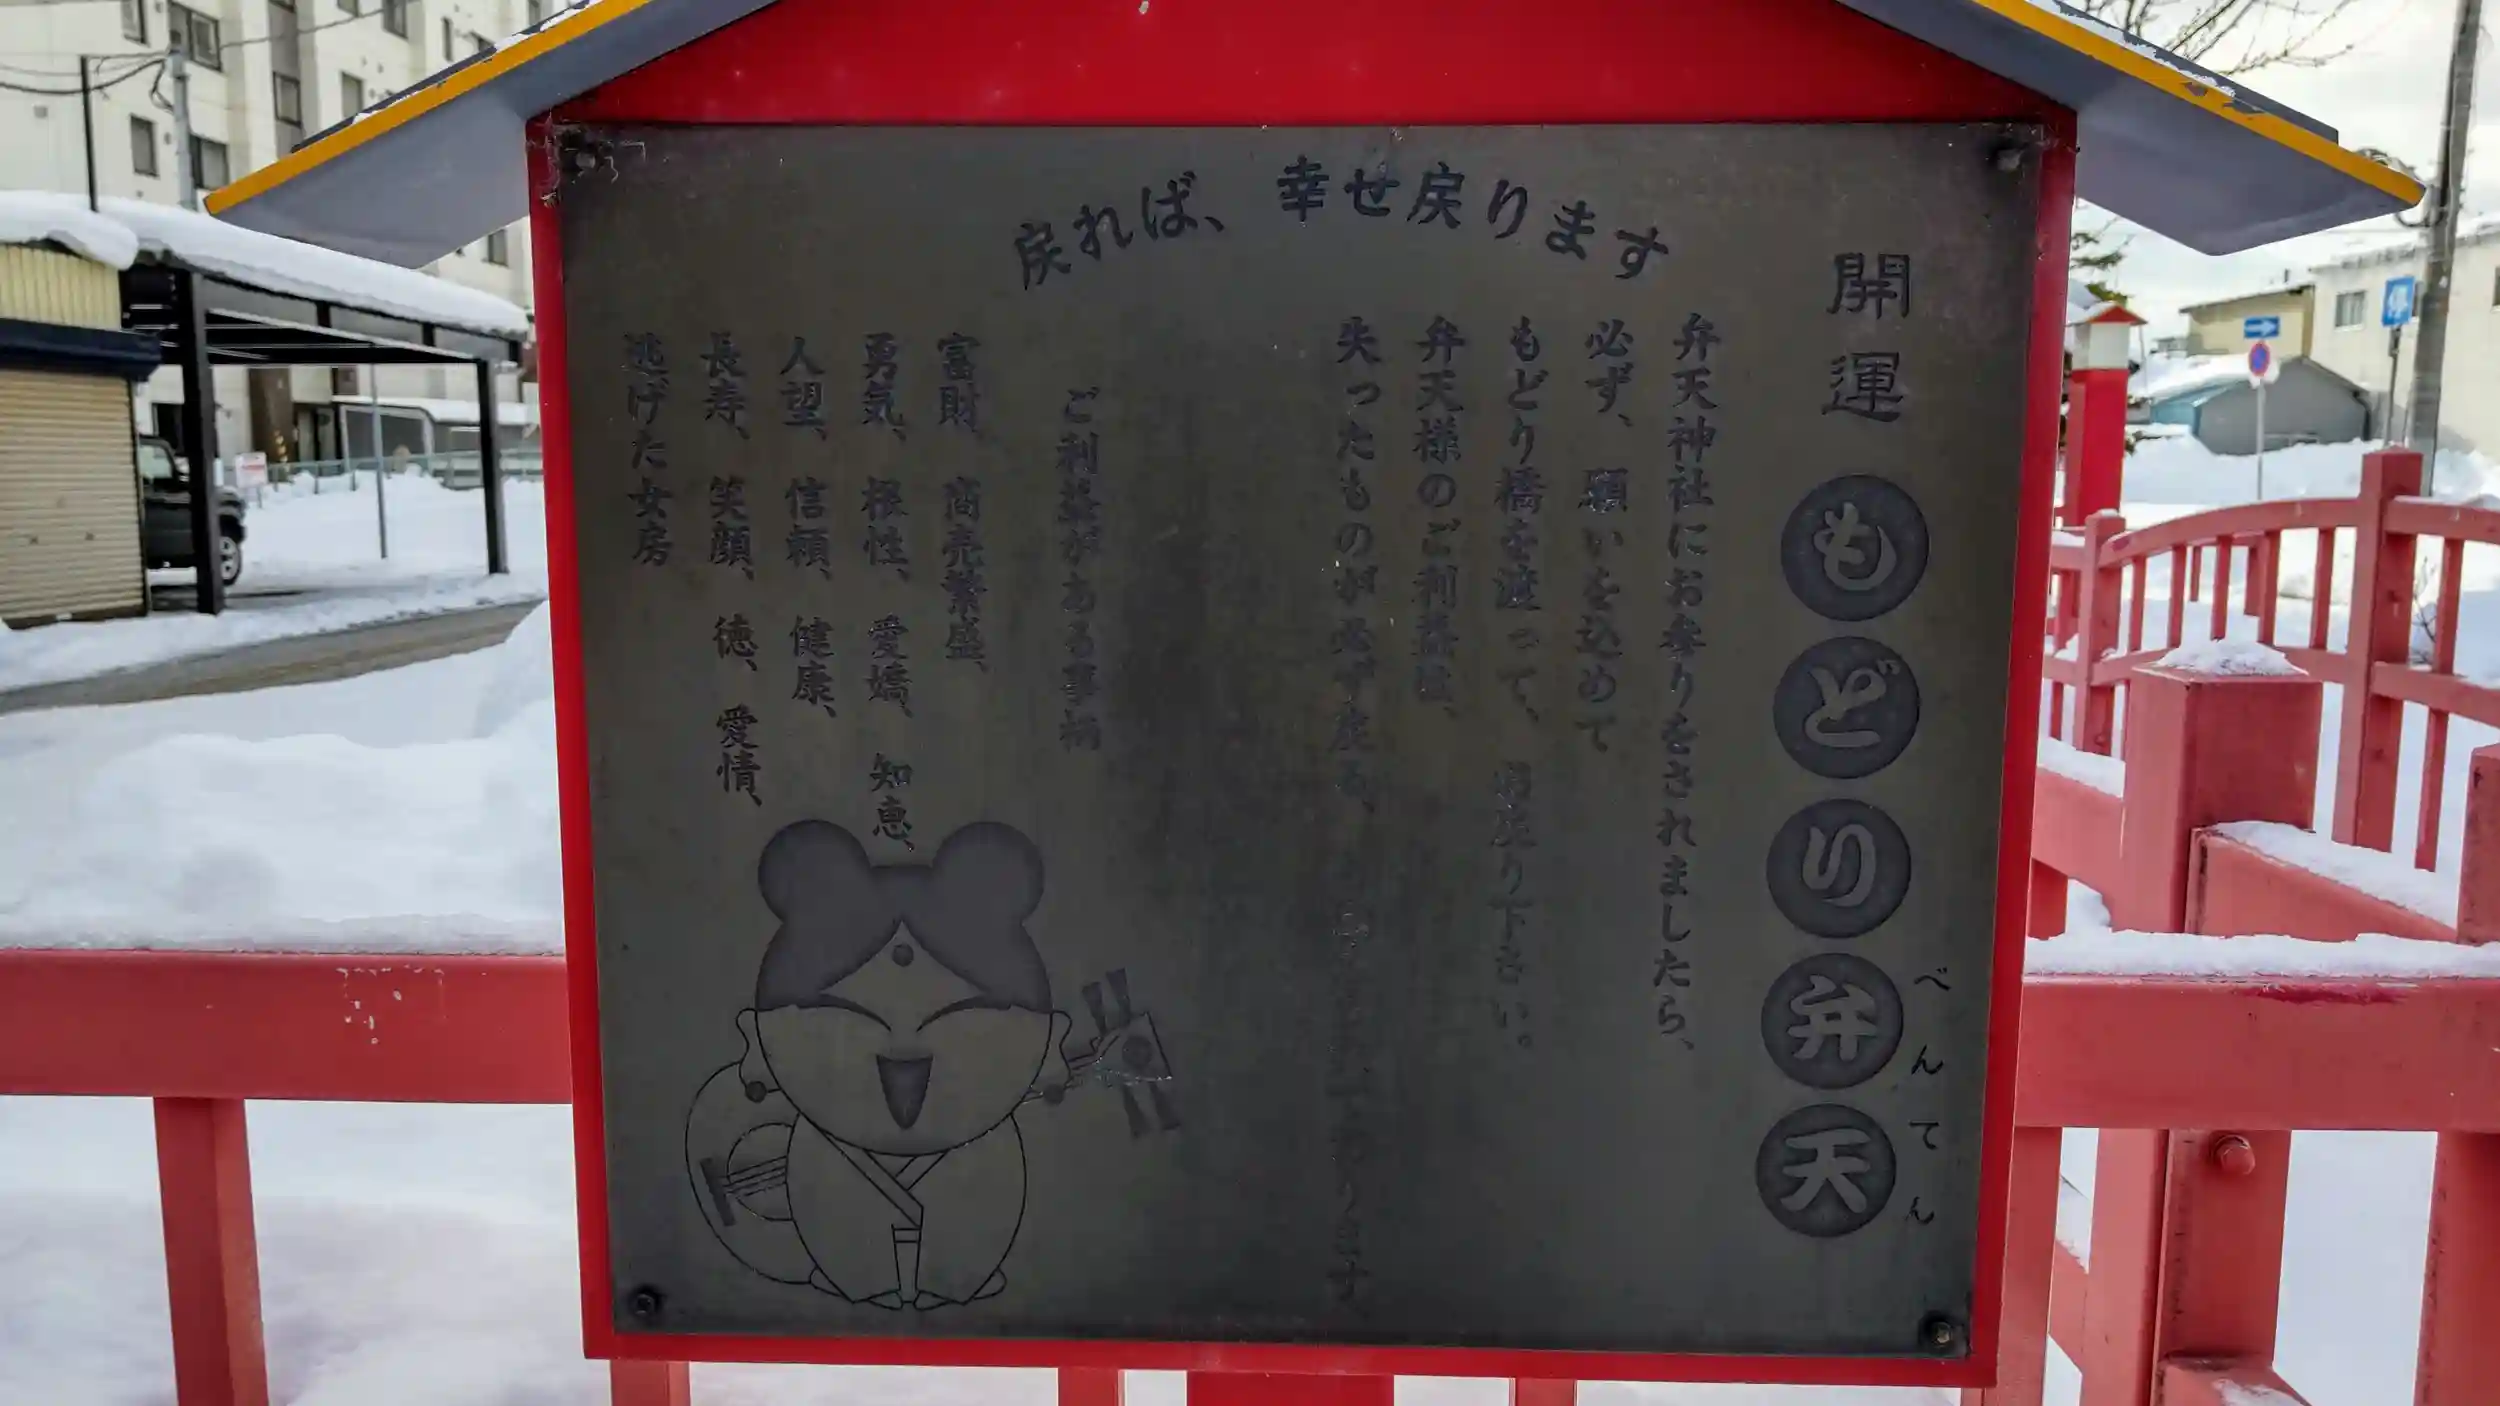 戻れば、幸せ戻ります
開運 もどり弁天
べんてん
弁天神社にお参りをされましたら、
必ず、願いを込めて
もどり橋を渡って、お戻り下さい。
弁天様のご利益は、
失ったものが必ず戻る、
ご利益がある事柄
富財、商売繁盛、
勇気、根性、愛嬌、知恵、
人望、信頼、健康、
長寿、笑顔、徳、愛情、
逃げた女房